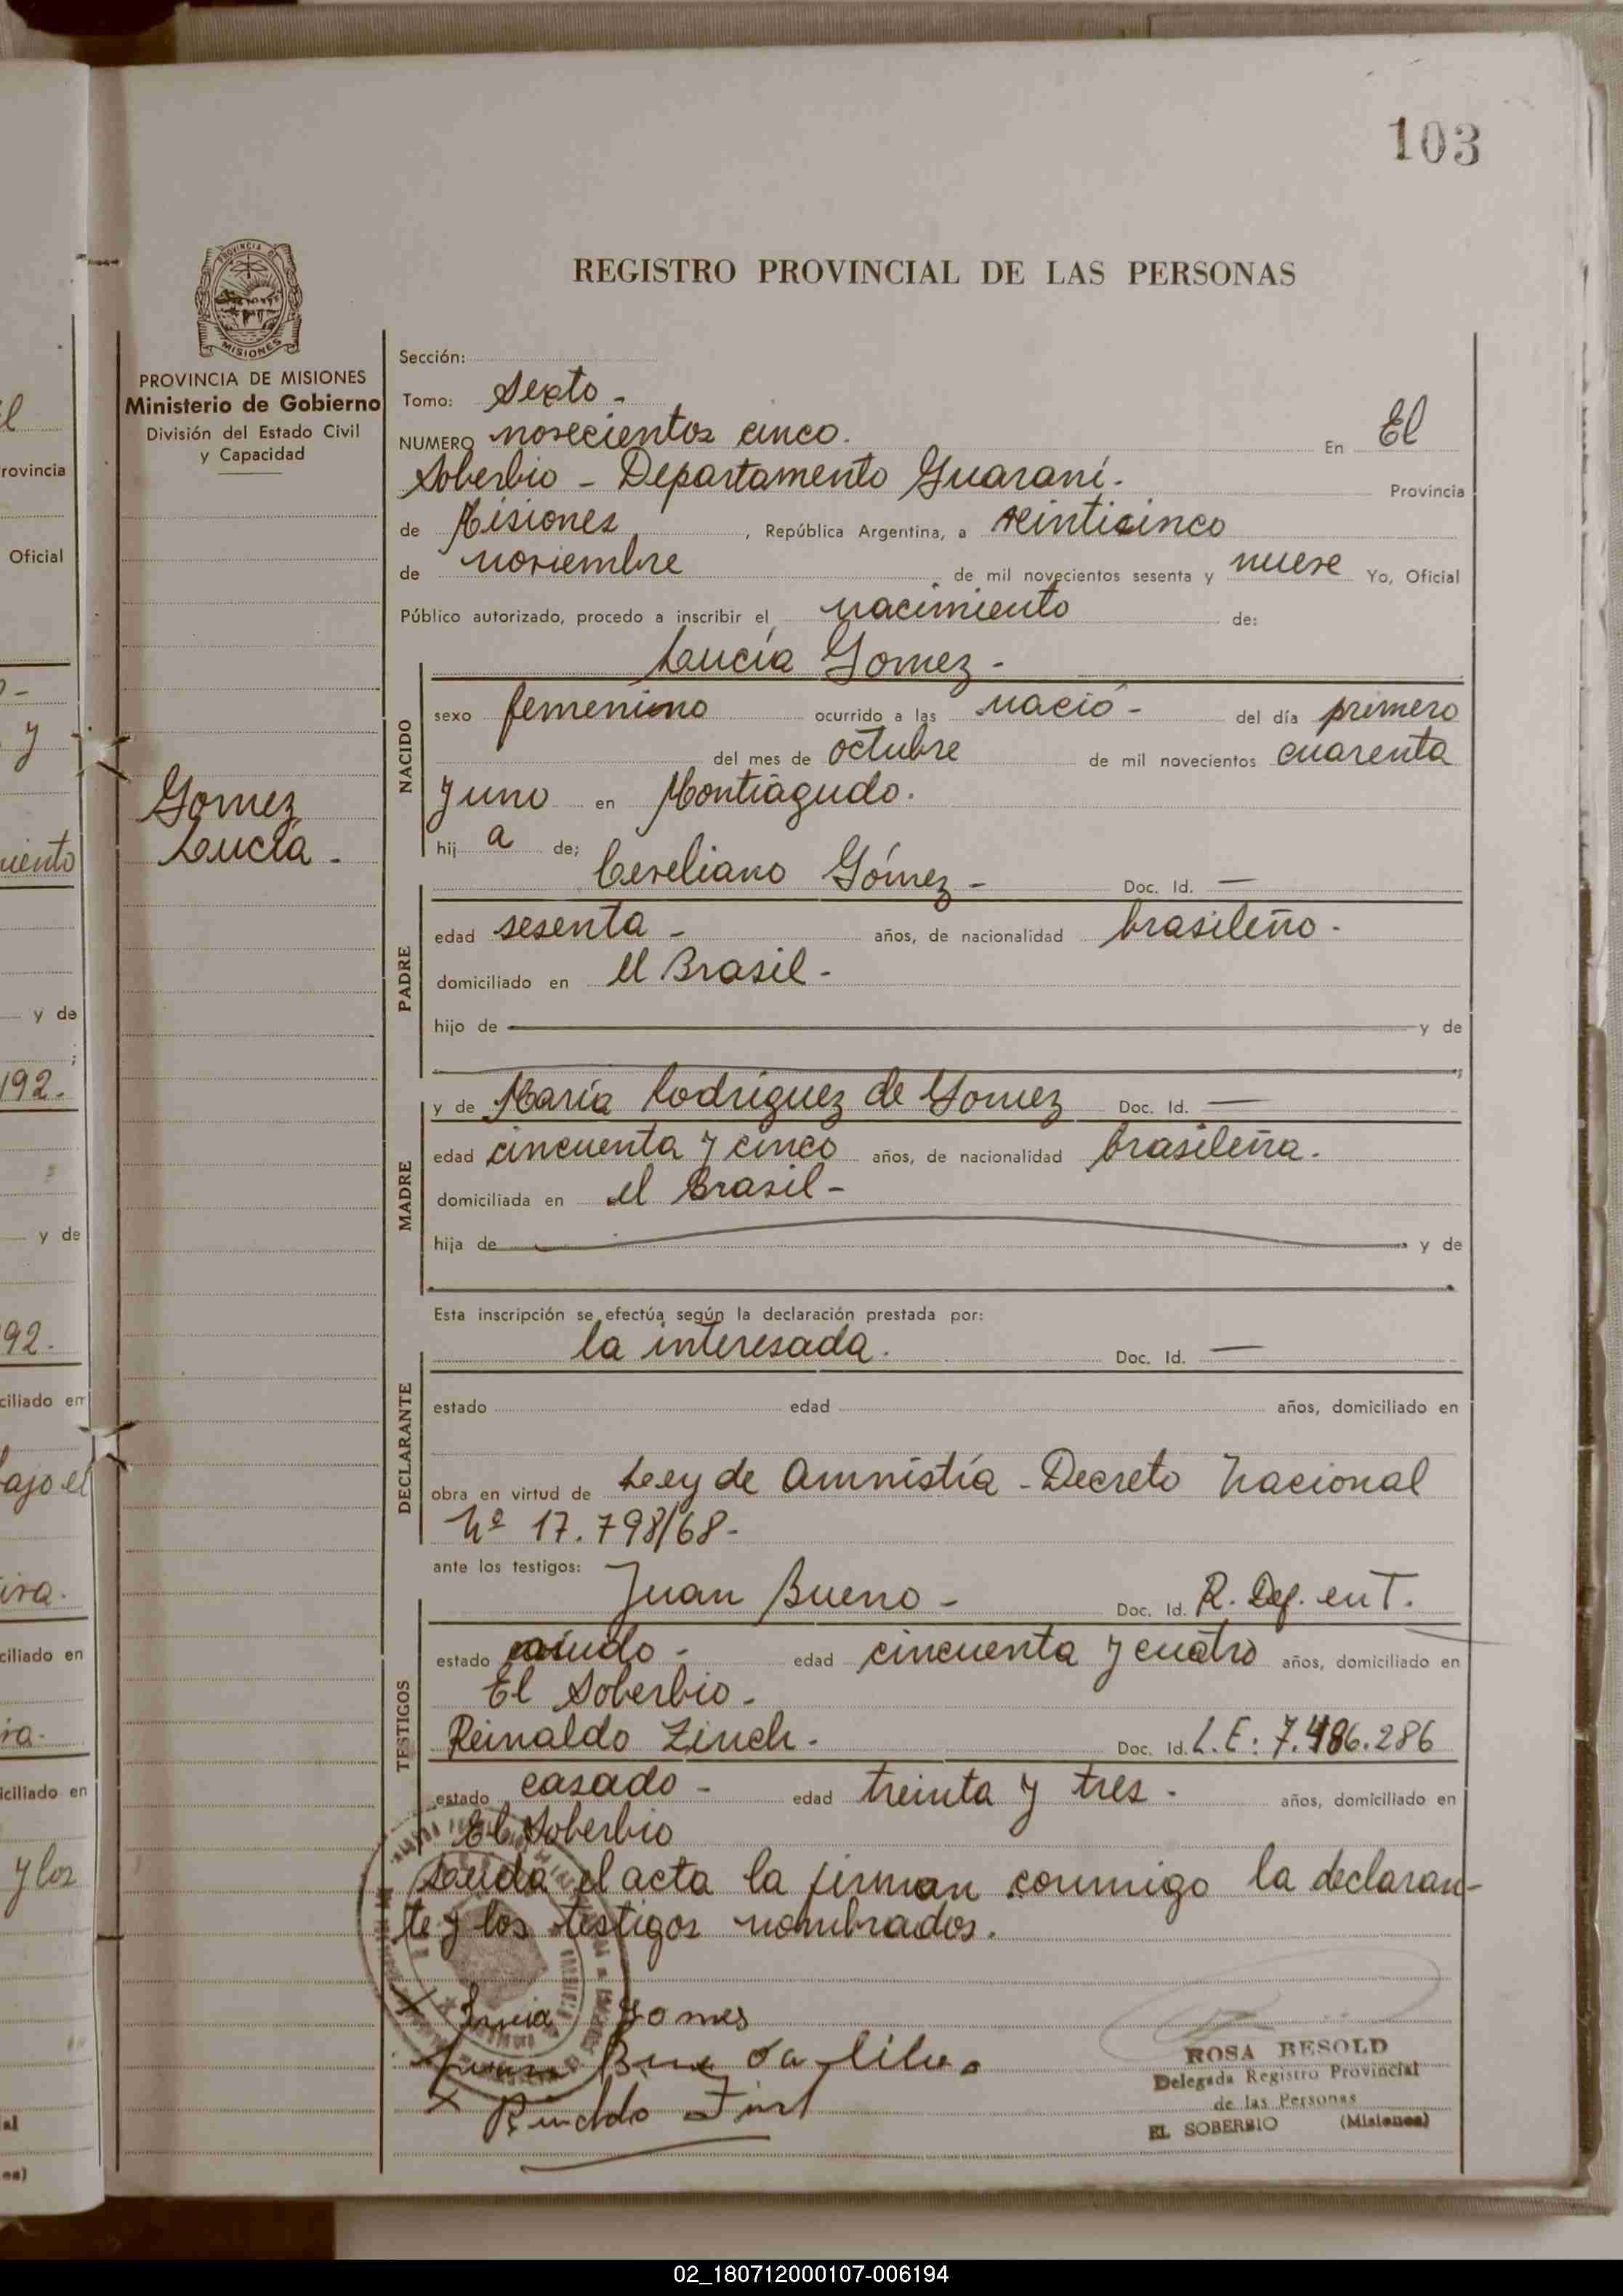 103
PROVINCIA DE
MISIONES
REGISTRO PROVINCIAL DE LAS PERSONAS
PROVINCIA DE MISIONES
Ministerio de Gobierno
División del Estado Civil
y Capacidad
Gomez
Lucía -
Sección:
Tomo: Sexto -
NUMERO novecientos cinco. En El
Soberbio - Departamento Guaraní. Provincia
de Misiones, República Argentina, a veinticinco
de noviembre de mil novecientos sesenta y nueve Yo, Oficial
Público autorizado, procedo a inscribir el nacimiento de:
Lucía Gomez -
NACIDO
sexo femenino ocurrido a las nació - del día primero
del mes de octubre de mil novecientos cuarenta
y uno en Montiágudo.
hij a de;
PADRE
Cereliano Gómez - Doc. Id. —
edad sesenta - años, de nacionalidad brasileño -
domiciliado en el Brasil -
hijo de y de
MADRE
y de María Rodríguez de Gomez Doc. Id. —
edad cincuenta y cinco años, de nacionalidad brasileña.
domiciliada en el Brasil -
hija de y de
Esta inscripción se efectúa según la declaración prestada por:
DECLARANTE
la interesada. Doc. Id. —
estado edad años, domiciliado en
obra en virtud de Ley de Amnistía - Decreto Nacional
Nº 17.798/68 -
ante los testigos:
TESTIGOS
Juan Bueno - Doc. Id. R. Def. en T.
estado edad cincuenta y cuatro años, domiciliado en
El Soberbio -
Reinaldo Zinch. Doc. Id. L.E: 7.486.286
estado casado - edad treinta y tres - años, domiciliado en
El Soberbio
Leída el acta la firman conmigo la declaran-
te y los testigos nombrados.
Lucia Gomes
ROSA BESOLD
Delegada Registro Provincial
de las Personas
EL SOBERBIO (Misiones)
rovincia
Oficial
y de
192.
y de
92.
ciliado en
ciliado en
iciliado en
y los
02_180712000107-006194